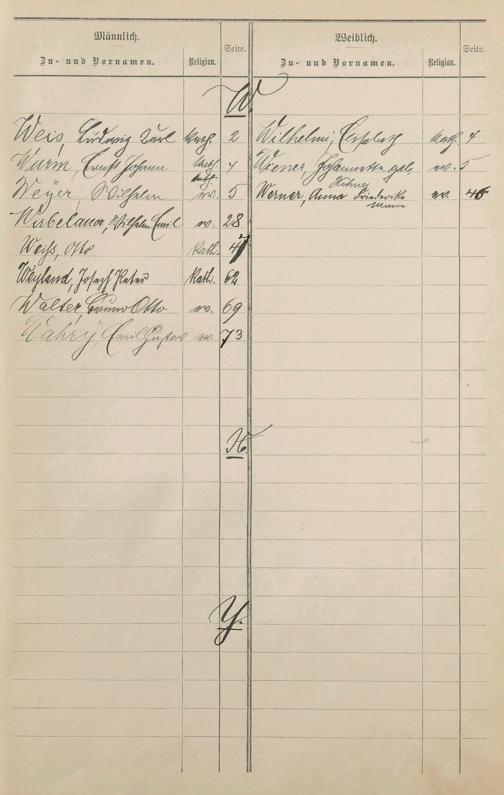 Männlich.
Zu- und Vornamen. Religion. Seite.
Weiblich.
Zu- und Vornamen. Religion. Seite.
W.
Weis, Ludwig Karl kath. 2
Wurm, Ernst Johann kath. 4
Weyer, Wilhelm ev. 5
Wirbelauer, Wilhelm Emil ev. 28
Weiß, Otto kath. 47
Weyland, Joseph Peter kath. 62
Walter, Bruno Otto ev. 69
Wahry, Emil Gustav ev. 73
Wilhelmi, Elisabeth kath. 4
Wiener, Johannette geb. ev. 5
Werner, Anna Friederike ev. 46
Marie
X.
Y.